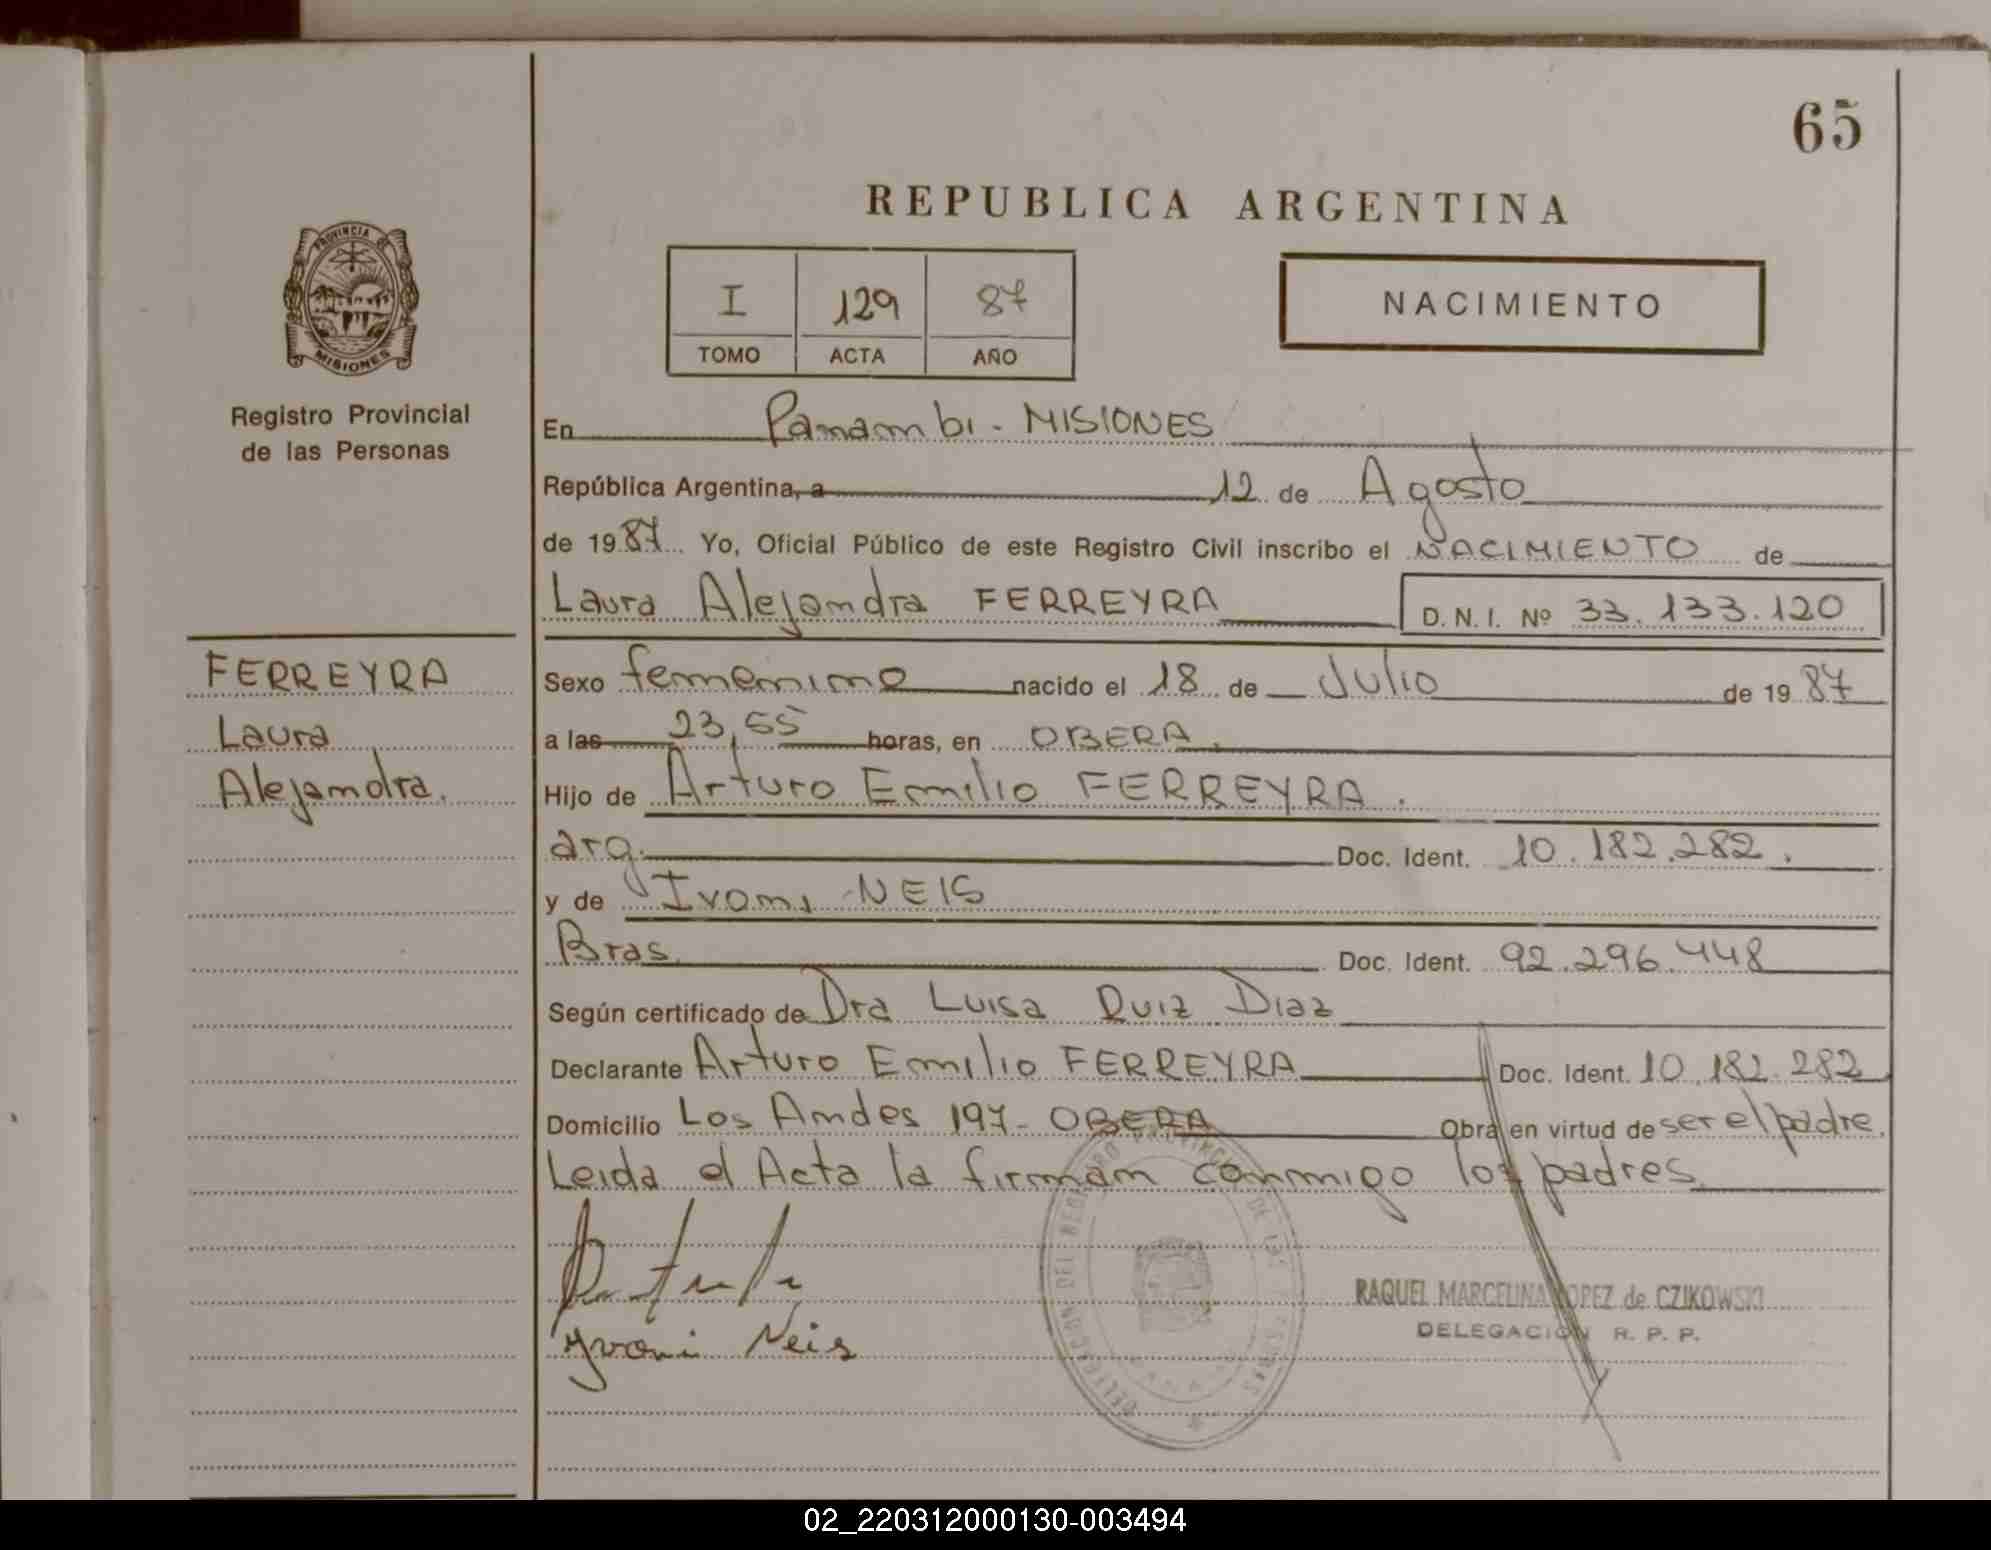 65
REPUBLICA ARGENTINA
PROVINCIA DE
MISIONES
Registro Provincial
de las Personas
I 129 87
TOMO ACTA AÑO
NACIMIENTO
En Panambi - MISIONES
República Argentina, a 12 de Agosto
de 1987 Yo, Oficial Público de este Registro Civil inscribo el NACIMIENTO de
Laura Alejandra FERREYRA D. N. I. Nº 33.133.120
FERREYRA
Laura
Alejandra.
Sexo femenino nacido el 18 de Julio de 1987
a las 23,55 horas, en OBERA.
Hijo de Arturo Emilio FERREYRA.
arg. Doc. Ident. 10.182.282.
y de Ivoni NEIS
Bras. Doc. Ident. 92.296.448
Según certificado de Dra Luisa Ruiz Diaz
Declarante Arturo Emilio FERREYRA Doc. Ident. 10.182.282
Domicilio Los Andes 197- OBERA Obra en virtud de ser el padre.
Leida el Acta la firman conmigo los padres.
Yvoni Neis
RAQUEL MARCELINA LOPEZ de CZIKOWSKI
DELEGACION R. P. P.
02_220312000130-003494